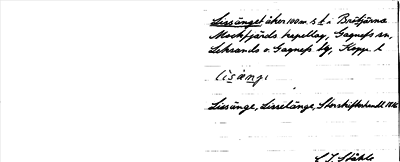 Lissänget åker 100 m. s. t. i Brötjärna
Mockfjärds kapellag, Gagnefs sn,
Leksands o. Gagnefs tg, Kopp. l
lisäŋə
Lissänge, Lisselänge, Storskifteshandl. 18
C. I. Ståhle